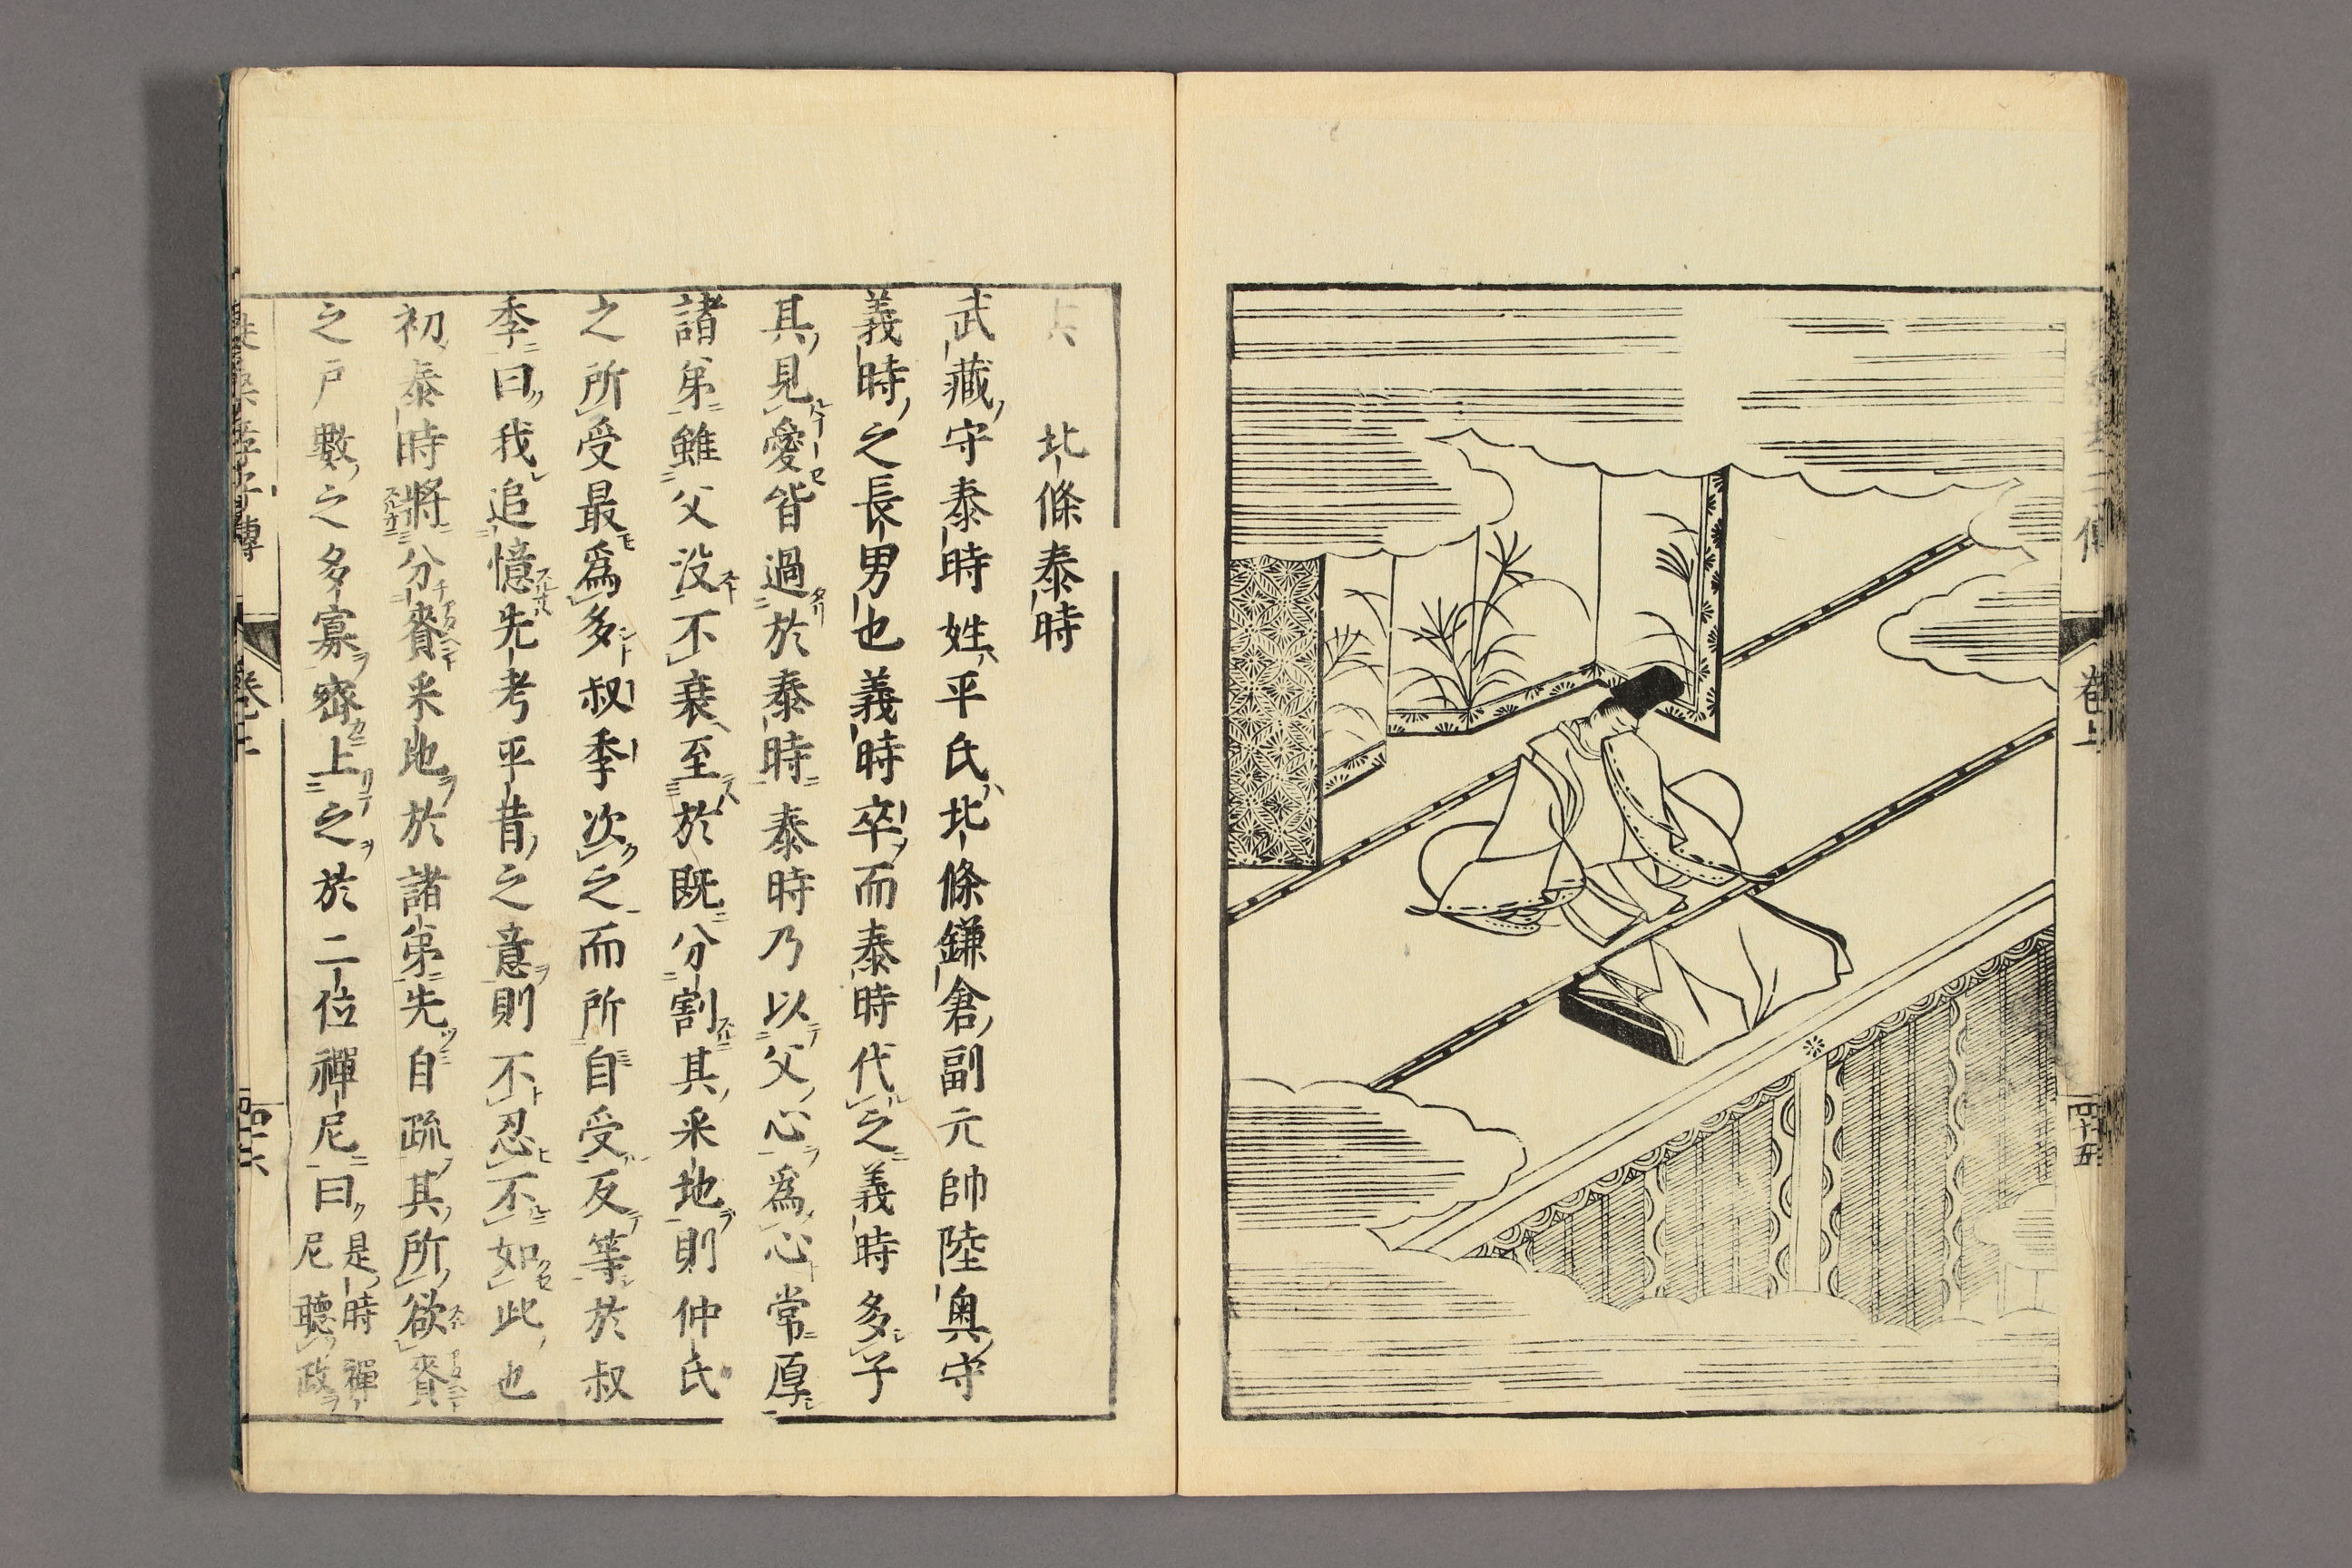 巻上
四十五
北條泰時
武藏守泰時姓平氏北條鎌倉副元帥陸奥守
義時之長男也義時卒而泰時代之義時多子
其見愛皆過於泰時泰時乃以父心爲心常厚
諸弟雖父没不衰至於既分割其采地則仲氏
之所受最爲多叔季次之而所自受反等於叔
季曰我追憶先考平昔之意則不忍不如此也
初泰時將分賚采地於諸弟先自疏其所欲賚
之戸數之多寡齊上之於二位禪尼曰是時禪
尼聽政
孝子傳
巻上
四十六